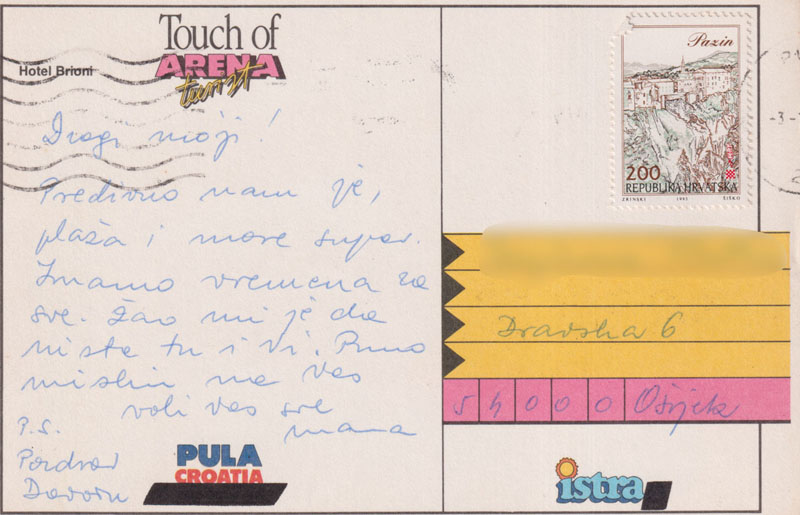 Hotel Brioni
Touch of
ARENA
turist
Dragi moji!
Predivno nam je,
plaža i more super.
Imamo vremena za
sve. Žao mi je da
niste tu i vi. Puno
mislim na Vas
voli vas sve
mama
P.S.
Pozdrav
Davoru
PULA
CROATIA
Pazin
200
REPUBLIKA HRVATSKA
ZRINSKI 1993 ŠIŠKO
Dravska 6
54000 Osijek
istra